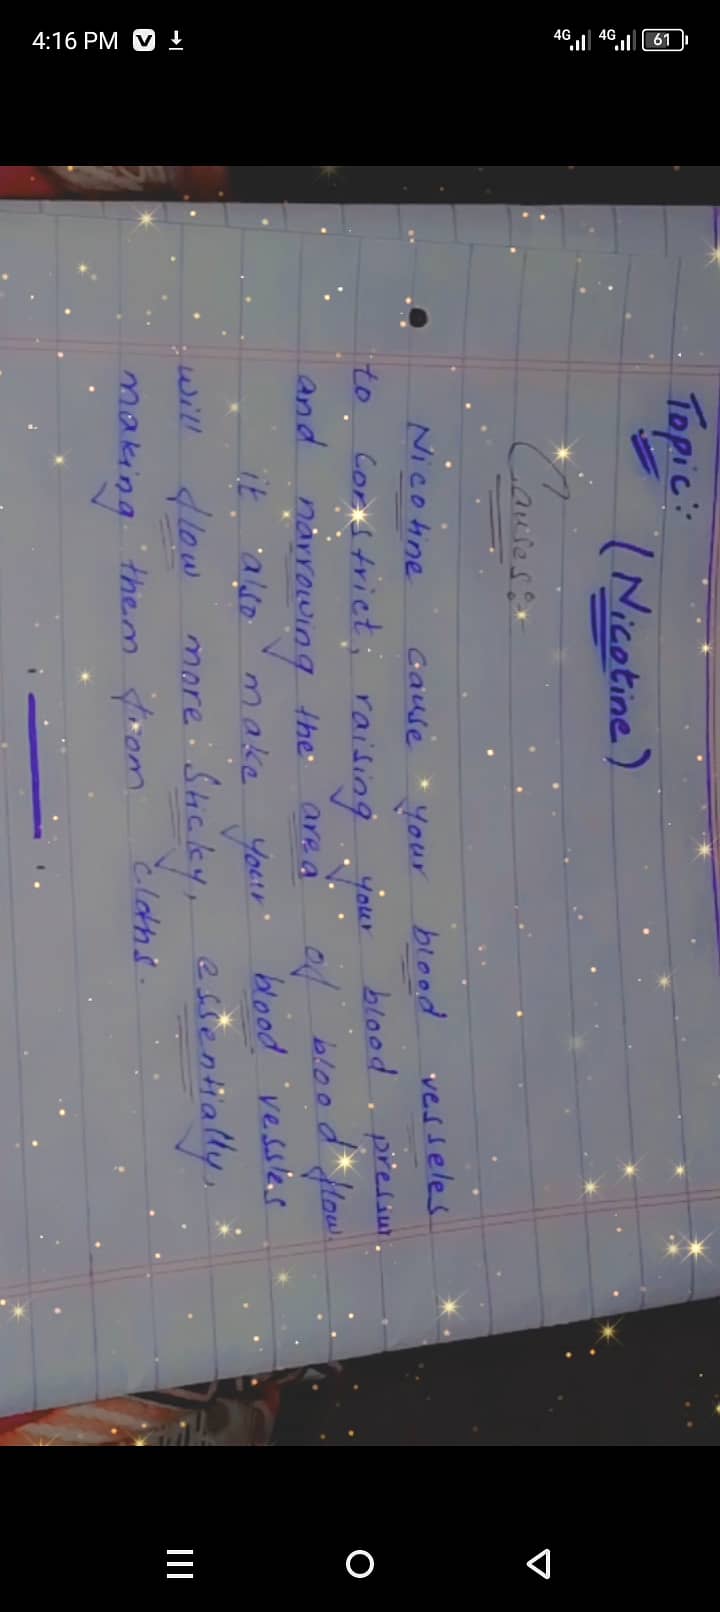 4:16 PM
4G 4G 61
Topic:
(Nicotine)
Causes:-
Nicotine cause your blood vesseles
to constrict, raising your blood pressur
and narrowing the area of blood flow
it also make your blood vessles
will flow more sticky, essentially,
making them from cloths.